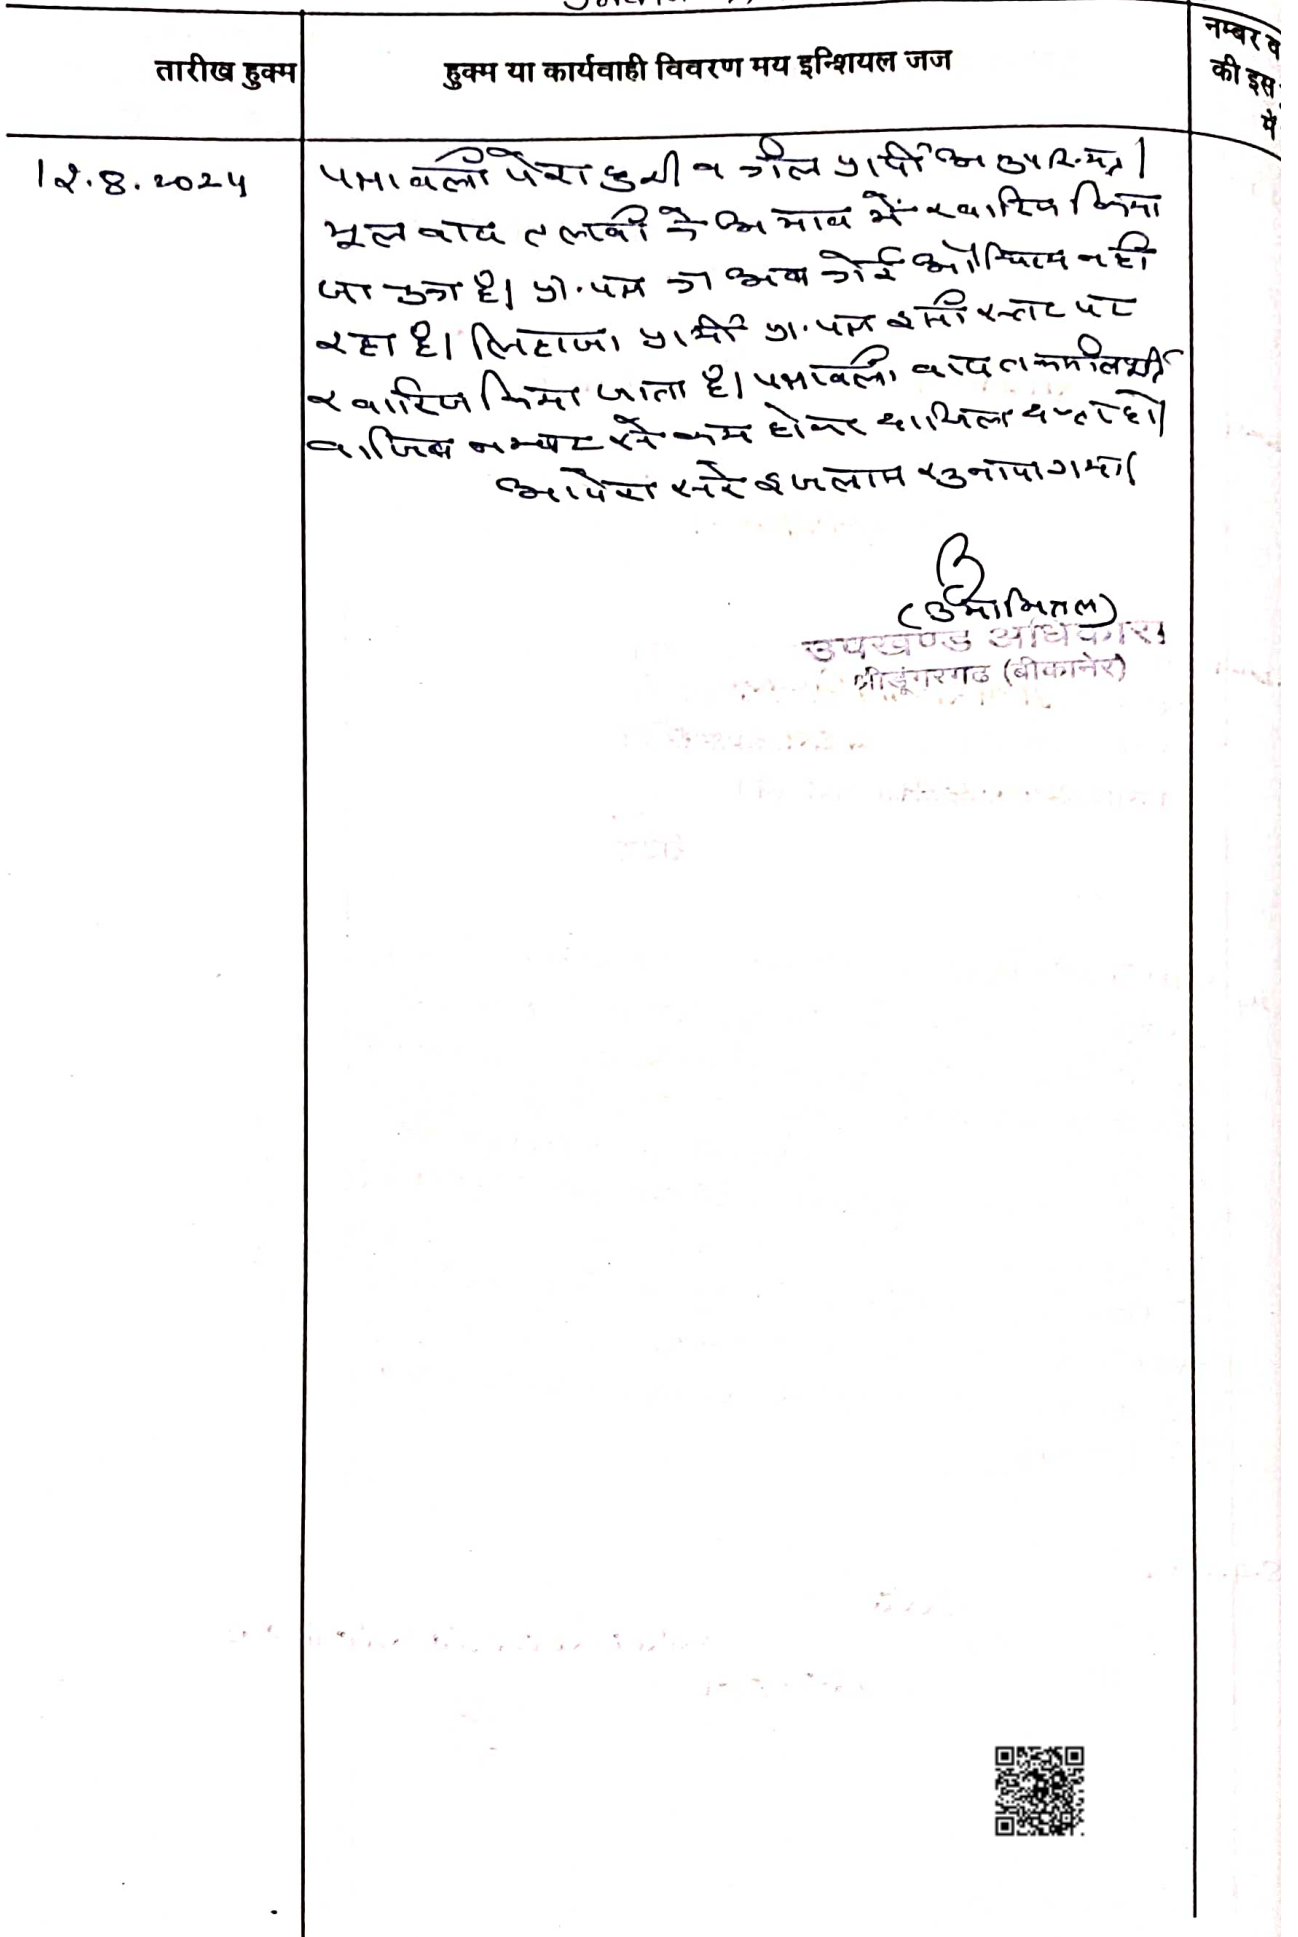 तारीख हुक्म
हुक्म या कार्यवाही विवरण मय इन्शियल जज
नम्बर व
की इस
में
12.8.2024
पत्रावली पेश हुयी वकील प्रार्थी अनुपस्थित।
मूल वाद तलबी के अभाव में खारिज किया
जा चुका है। प्रा.पत्र का अब कोई औचित्य नही
रहा है। लिहाजा प्रार्थी प्रा.पत्र इसी स्तर पर
खारिज किया जाता है। पत्रावली बाद तकमील
वाजिब नम्बर से कम होकर दाखिल दफ्तर हो।
आदेश सरे इजलास सुनाया गया।
(उमा मित्तल)
उपखण्ड अधिकारी
श्रीडूंगरगढ (बीकानेर)